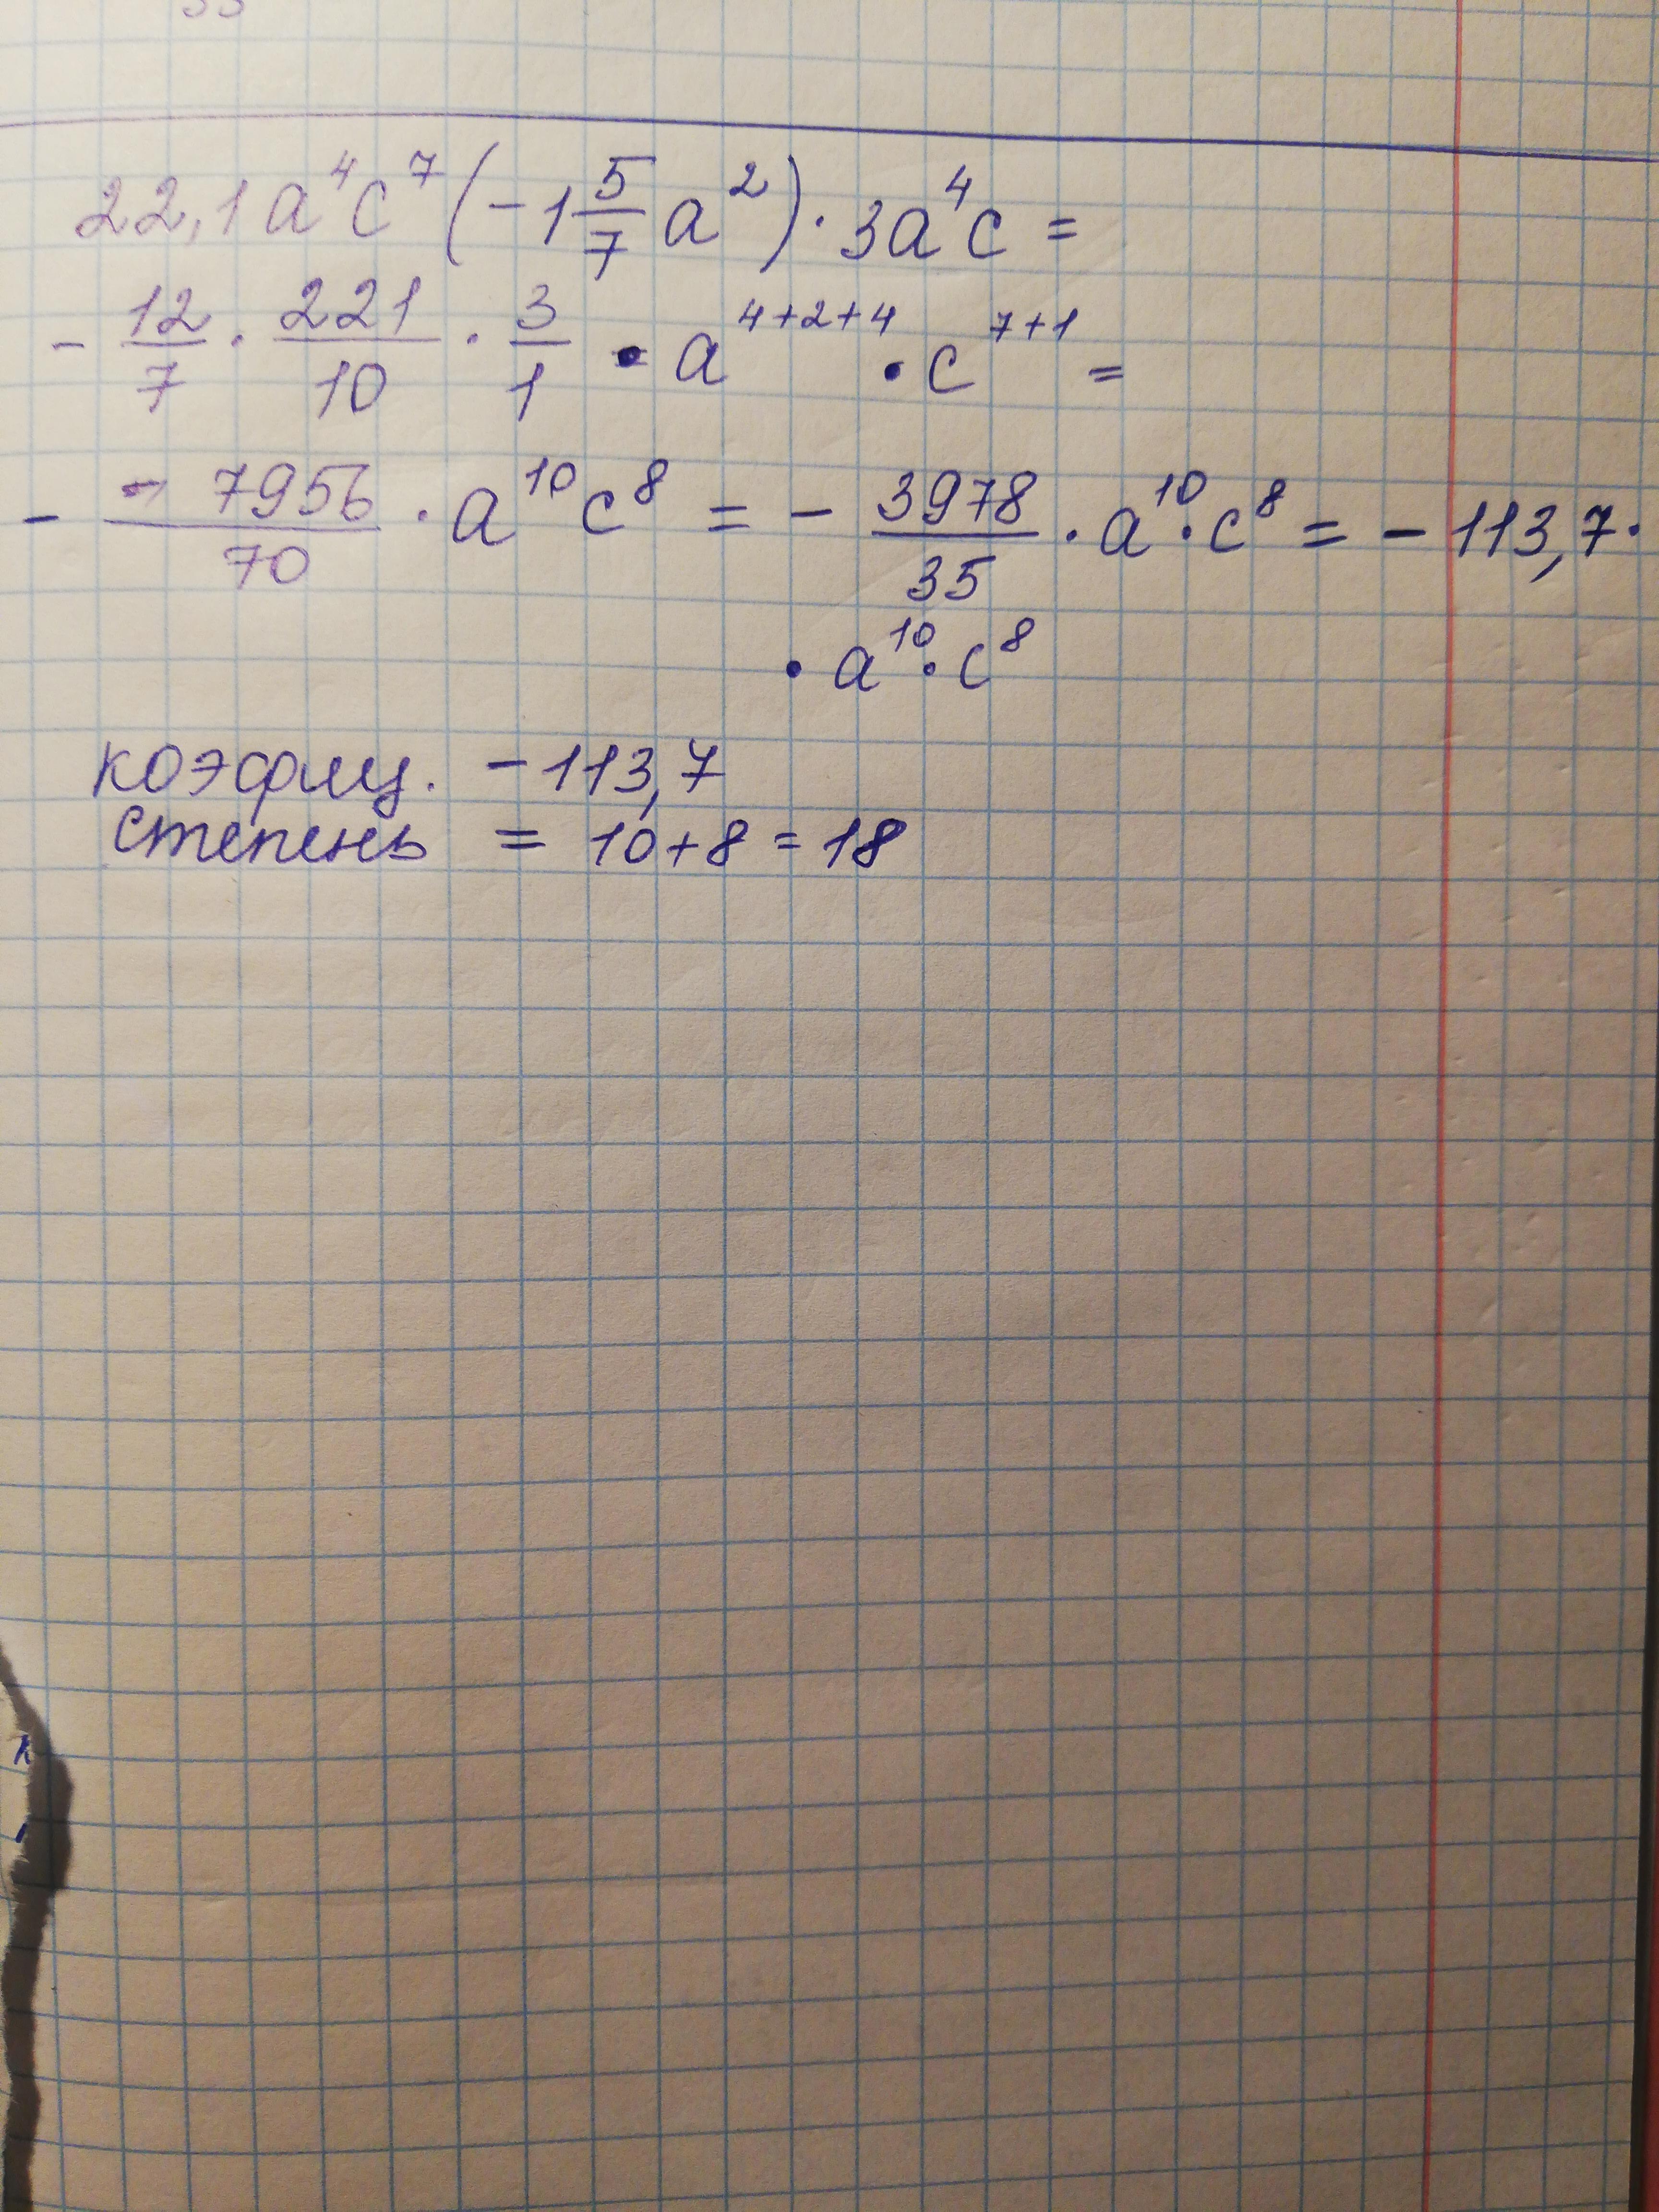 22,1a⁴c⁷(-1 5/7 a²)·3a⁴c =
- 12/7 · 221/10 · 3/1 · a⁴⁺²⁺⁴ · c⁷⁺¹ =
- 7956/70 · a¹⁰c⁸ = - 3978/35 · a¹⁰·c⁸ = - 113,7·
· a¹⁰·c⁸
коэфиц. - 113,7
степень = 10+8 = 18